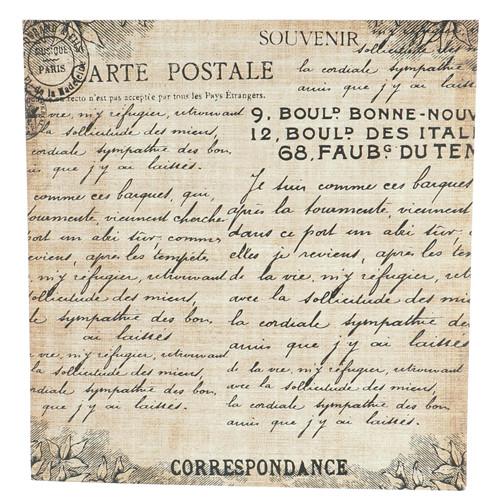 MUSIQUE
PARIS
de la Madeleine
SOUVENIR
ARTE POSTALE
recto n'est pas acceptée par tous les Pays Etrangers.
la cordiale sympathie des
amis que j'y ai laissés.
9, BOULD. BONNE-NOUV
12, BOULD. DES ITAL
68, FAUBG. DU TEM
vie, m'y réfugier, retrouvant
la sollicitude des miens,
sympathie des bon.
ai laissés.
comme ces barques, qui,
tourmente, viennent chercher
port un abri sûr, comme
reviens, après les tempête
vie, m'y réfugier, retrouvant
sollicitude des miens,
sympathie des bon.
ai laissés
vie, m'y réfugier, retrouvant
la sollicitude des miens,
cordiale sympathie des bon.
que j'y ai laissés.
Je suis comme ces barques
après la tourmente, viennent
dans ce port un abri sûr
elles je reviens, après les tem
de la vie, m'y réfugier, retro
avec la sollicitude des miens
la cordiale sympathie des
amis que j'y ai laissés.
de la vie, m'y réfugier, retrouvant
avec la sollicitude des miens,
cordiale sympathie des bon.
amis que j'y ai laissés.
CORRESPONDANCE